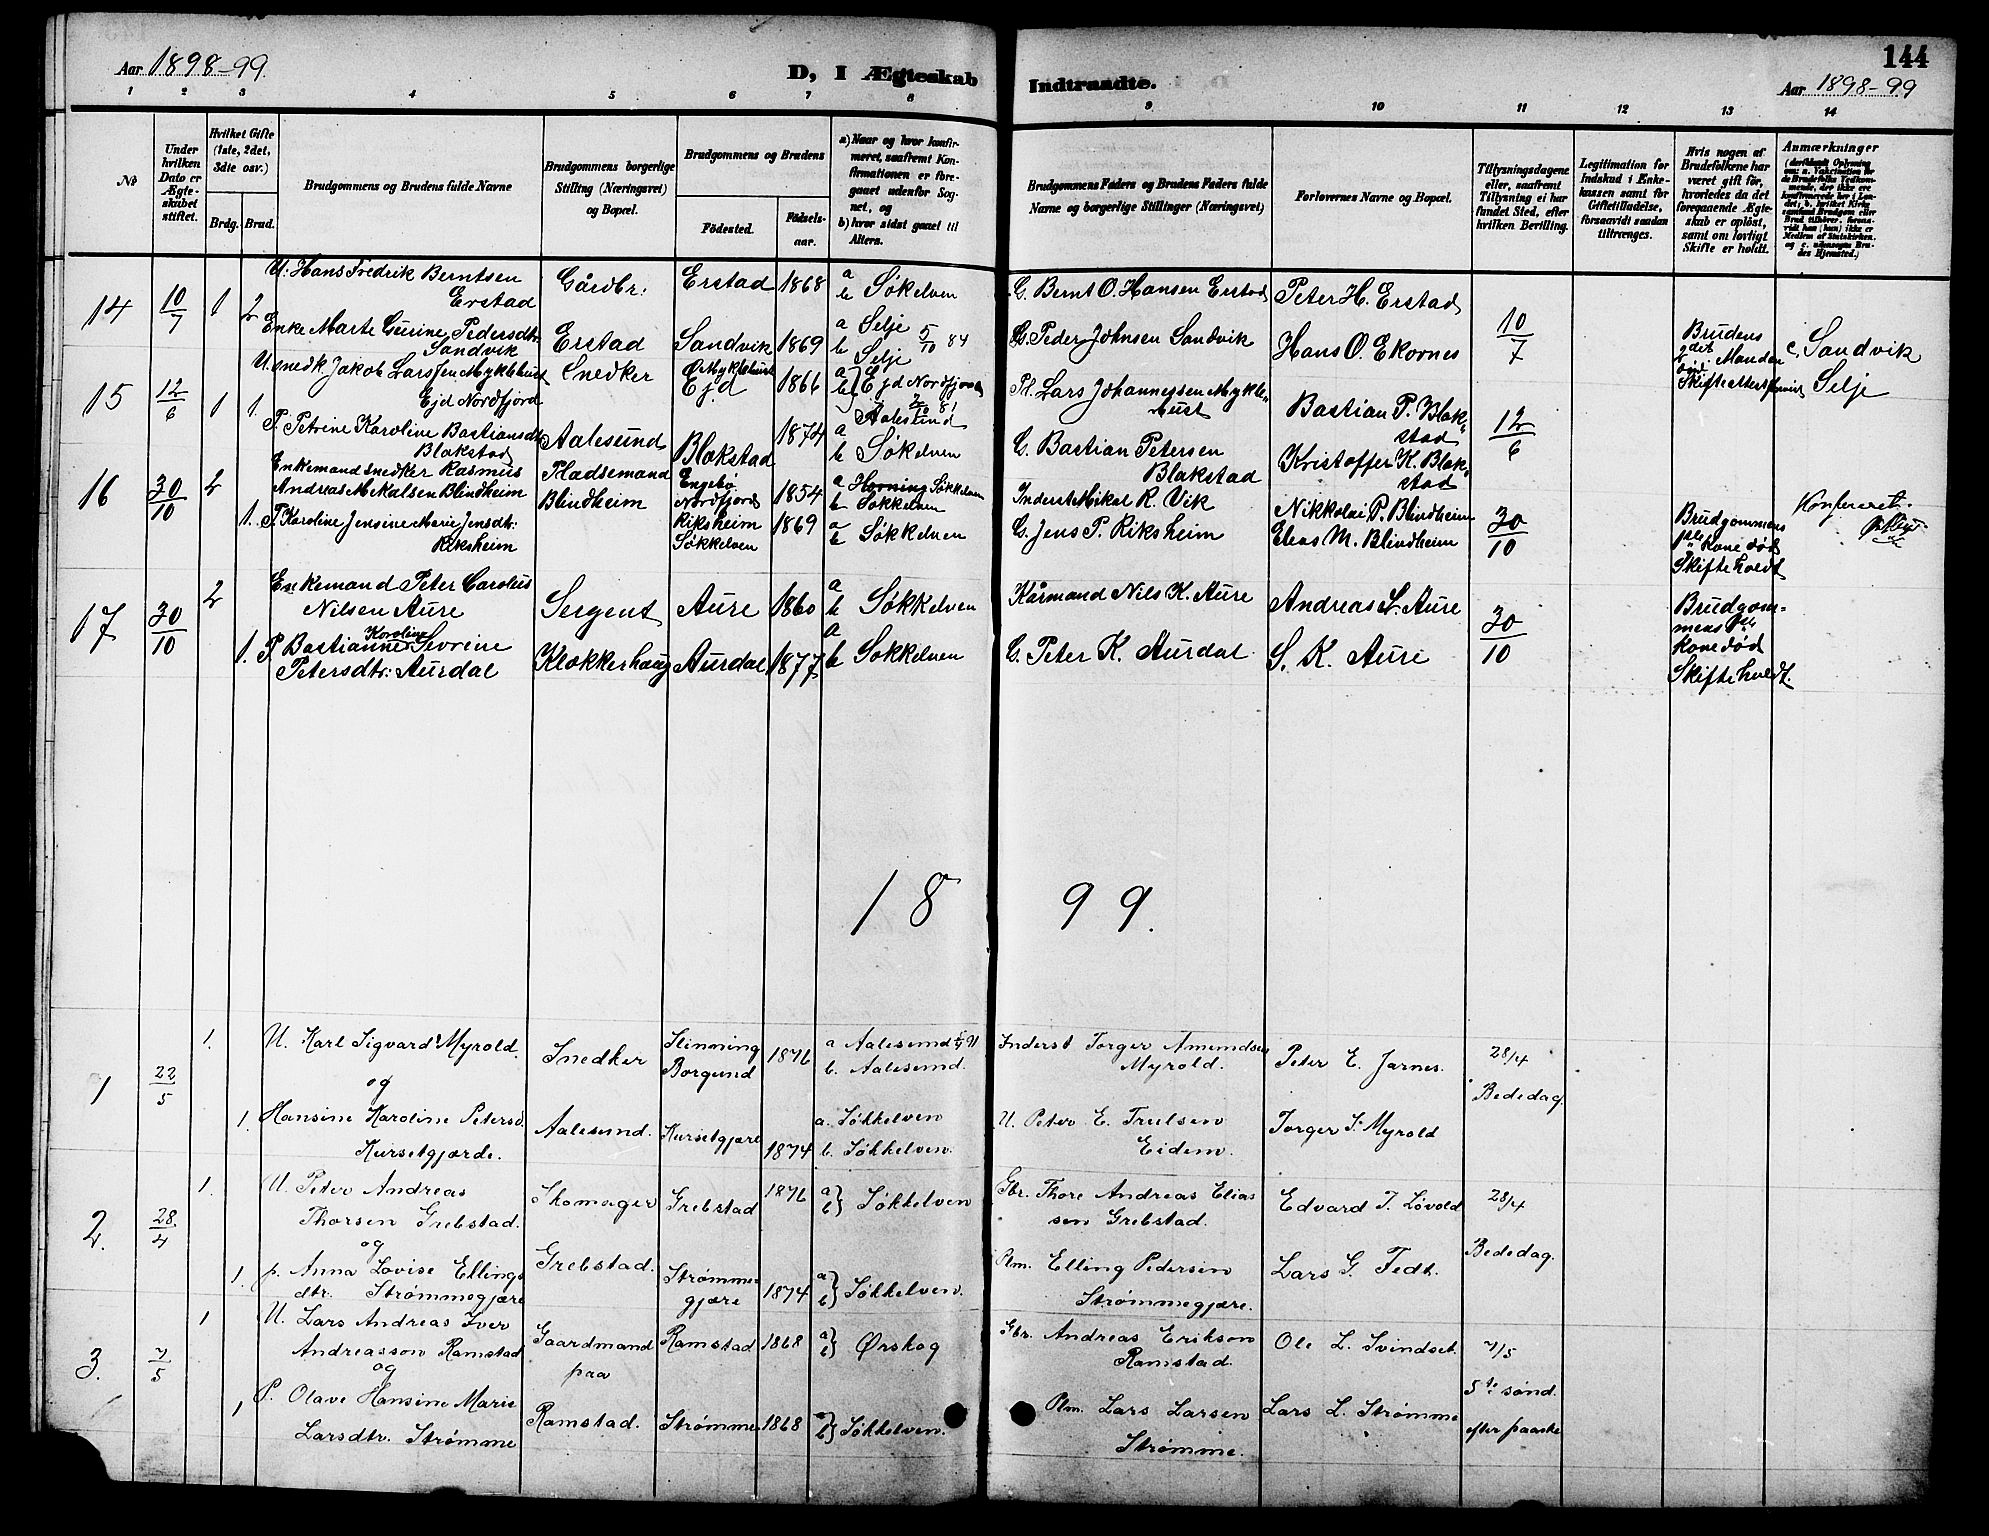 144
Aar 1898-99.
D, I Ægteskab Indtraadte.
Aar 1898-99
1 2 3 4 5 6 7 8 9 10 11 12 13 14
№
Under hvilken Dato er Ægteskabet stiftet.
Hvilket Gifte (1ste, 2det, 3die osv.)
Brdg. Brud.
Brudgommens og Brudens fulde Navne
Brudgommens borgerlige Stilling (Næringsvei) og Bopæl.
Brudgommens og Brudens
Födested.
Födselsaar.
a) Naar og hvor konfirmeret, saafremt Konfirmationen er foregaaet udenfor Sognet, og
b) hvor sidst gaaet til Alters.
Brudgommens Faders og Brudens Faders fulde Navne og borgerlige Stillinger (Næringsvei)
Forlovernes Navne og Bopæl.
Tillysningsdagene eller, saafremt Tillysning ei har fundet Sted, efter hvilken Bevilling.
Legitimation for Indskud i Enkekassen samt for Giftetilladelse, forsaavidt saadan tiltrænges.
Hvis nogen af Brudefolkene har været gift för, hvorledes da det foregaaende Ægteskab er oplöst, samt om lovligt Skifte er holdt.
Anmærkninger
14 10/7 1 2
U. Hans Fredrik Berntsen Erstad
Gårdbr: Erstad 1868 a b Søkelven
G. Bernt O. Hansen Erstad
Peter H. Erstad
Enke Marte Gurine Pedersdtr. Sandvik
Erstad Sandvik 1869 a Selje 5/10 84 b Selje
G. Peder Johnsen Sandvik
Hans O. Ekornes
10/7
Brudens Manden Skifte
c, Sandvik Selje
15 12/6 1 1.
U. snedk Jakob Larssen Myklebust Ejd Nordfjord
Snedker Myklebust Ejd 1866 a b Ejd Nordfjord Aalesund
Pl. Lars Johannessen Myklebust
Bastian P. Blakstad
P. Petrine Karoline Bastiansdtr Blakstad
Aalesund Blakstad 1874 a b Søkelven
G. Bastian Petersen Blakstad
Kristoffer K. Blakstad
12/6
16 30/10 2
Enkemand snedker Rasmus Andreas Mikalsen Blindheim
Pladsemand Blindheim
Engebø Nordfjord 1854 a Søkkelven b Søkkelven
Inderst Mikal R. Vik
Nikkolai P. Blindheim
1. P. Karoline Jensine Marie Jensdtr: Riksheim
Riksheim Søkkelven 1869 a b Søkkelven
G. Jens P. Riksheim
Elias M. Blindheim
30/10
Brudgommens 1ste Kone død Skifte holdt
17 30/10 2
Enkemand Peter Carolius Nilsen Aure
Sergent Aure 1860 a b Søkkelven
Kårmand Nils K. Aure
Andreas L. Aure
1. P. Bastianne Karoline Sevrine Petersdtr: Aurdal
Klokkerhaug Aurdal 1877 a b Søkkelven
G. Peter K. Aurdal
S. K. Aure
30/10
Brudgommens Kone død Skifte holdt.
1899.
1 22/5 1.
U. Karl Sigvard Myrold.
og
Snedker Slinning Borgund 1876 a Aalesund b. Aalesund.
Inderst Torger Amundsen Myrold.
Peter E. Jarnes.
28/4 Bededag.
1. Hansine Karoline Petersd. Kursetgjærde.
Aalesund. Kursetgjære 1874 a. Søkkelven b. Søkkelven.
U. Peter E. Trulsen Eidem.
Torger T. Myrold
2. 28/4 1.
U. Peter Andreas Thorsen Grebstad.
og
Skomager Grebstad 1876 a b Søkkelven
Gbr. Thore Andreas Eliassen Grebstad.
Edvard T. Løvold
28/4 Bededag.
1. p. Anna Lovise Ellingsdtr. Strømmegjære
Grebstad. Strømmegjære 1874 a b Søkkelven.
Plm. Elling Pedersen Strømmegjære.
Lars G. Tedt.
3. 7/5 1
U. Lars Andreas Iver Andreasson Ramstad
og
Gaardmand paa Ramstad 1868 a b Ørskog
Gbr. Andreas Erikson Ramstad.
Ole L. Svindset.
7/5 5te sønd. efter paaske
1 P. Olave Hansine Marie Larsdtr. Strømme
Ramstad. Strømme. 1868 a b Søkkelven.
Plm. Lars Larsen Strømme.
Lars L. Strømme